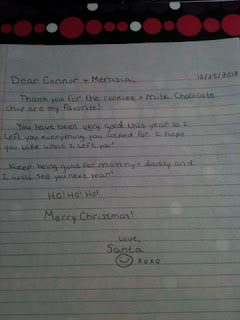 Dear Connor + Menasia,
12/25/2013
Thank you for the cookies + milk Chocolate
chip are my favorite!
You have been very good this year so I
left you everything you asked for. I hope
you like what I left you!
Keep being good for mommy + daddy and
I will see you next year!
HO! HO! HO!
Merry Christmas!
Love,
Santa
xoxo